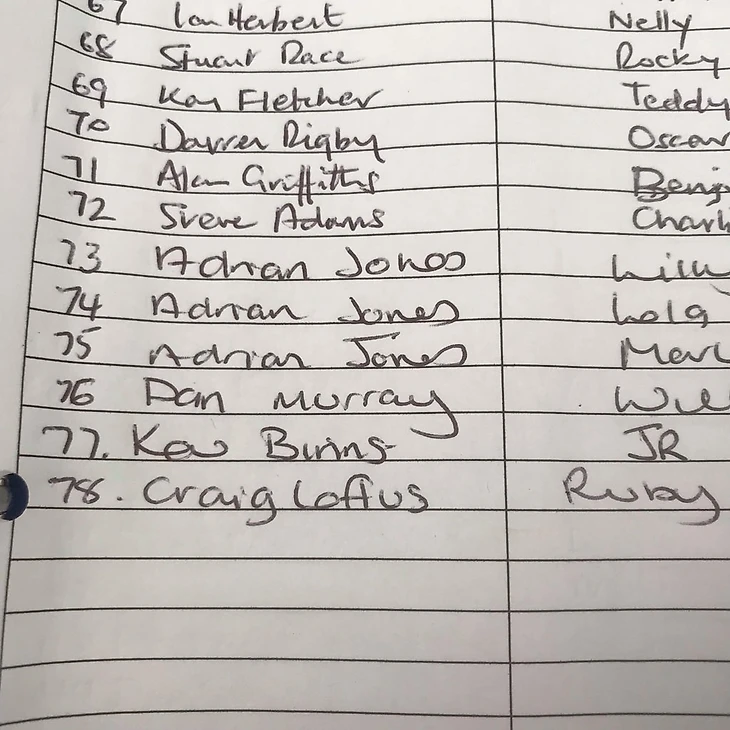 67 Ian Herbert Nelly
68 Stuart Race Rocky
69 Kay Fletcher Teddy
70 Darren Rigby Oscar
71 Alan Griffiths
72 Steve Adams Charl
73 Adrian Jones
74 Adrian Jones Lola
75 Adrian Jones
76 Dan Murray
77. Kev Binns JR
78. Craig Loffus Ruby